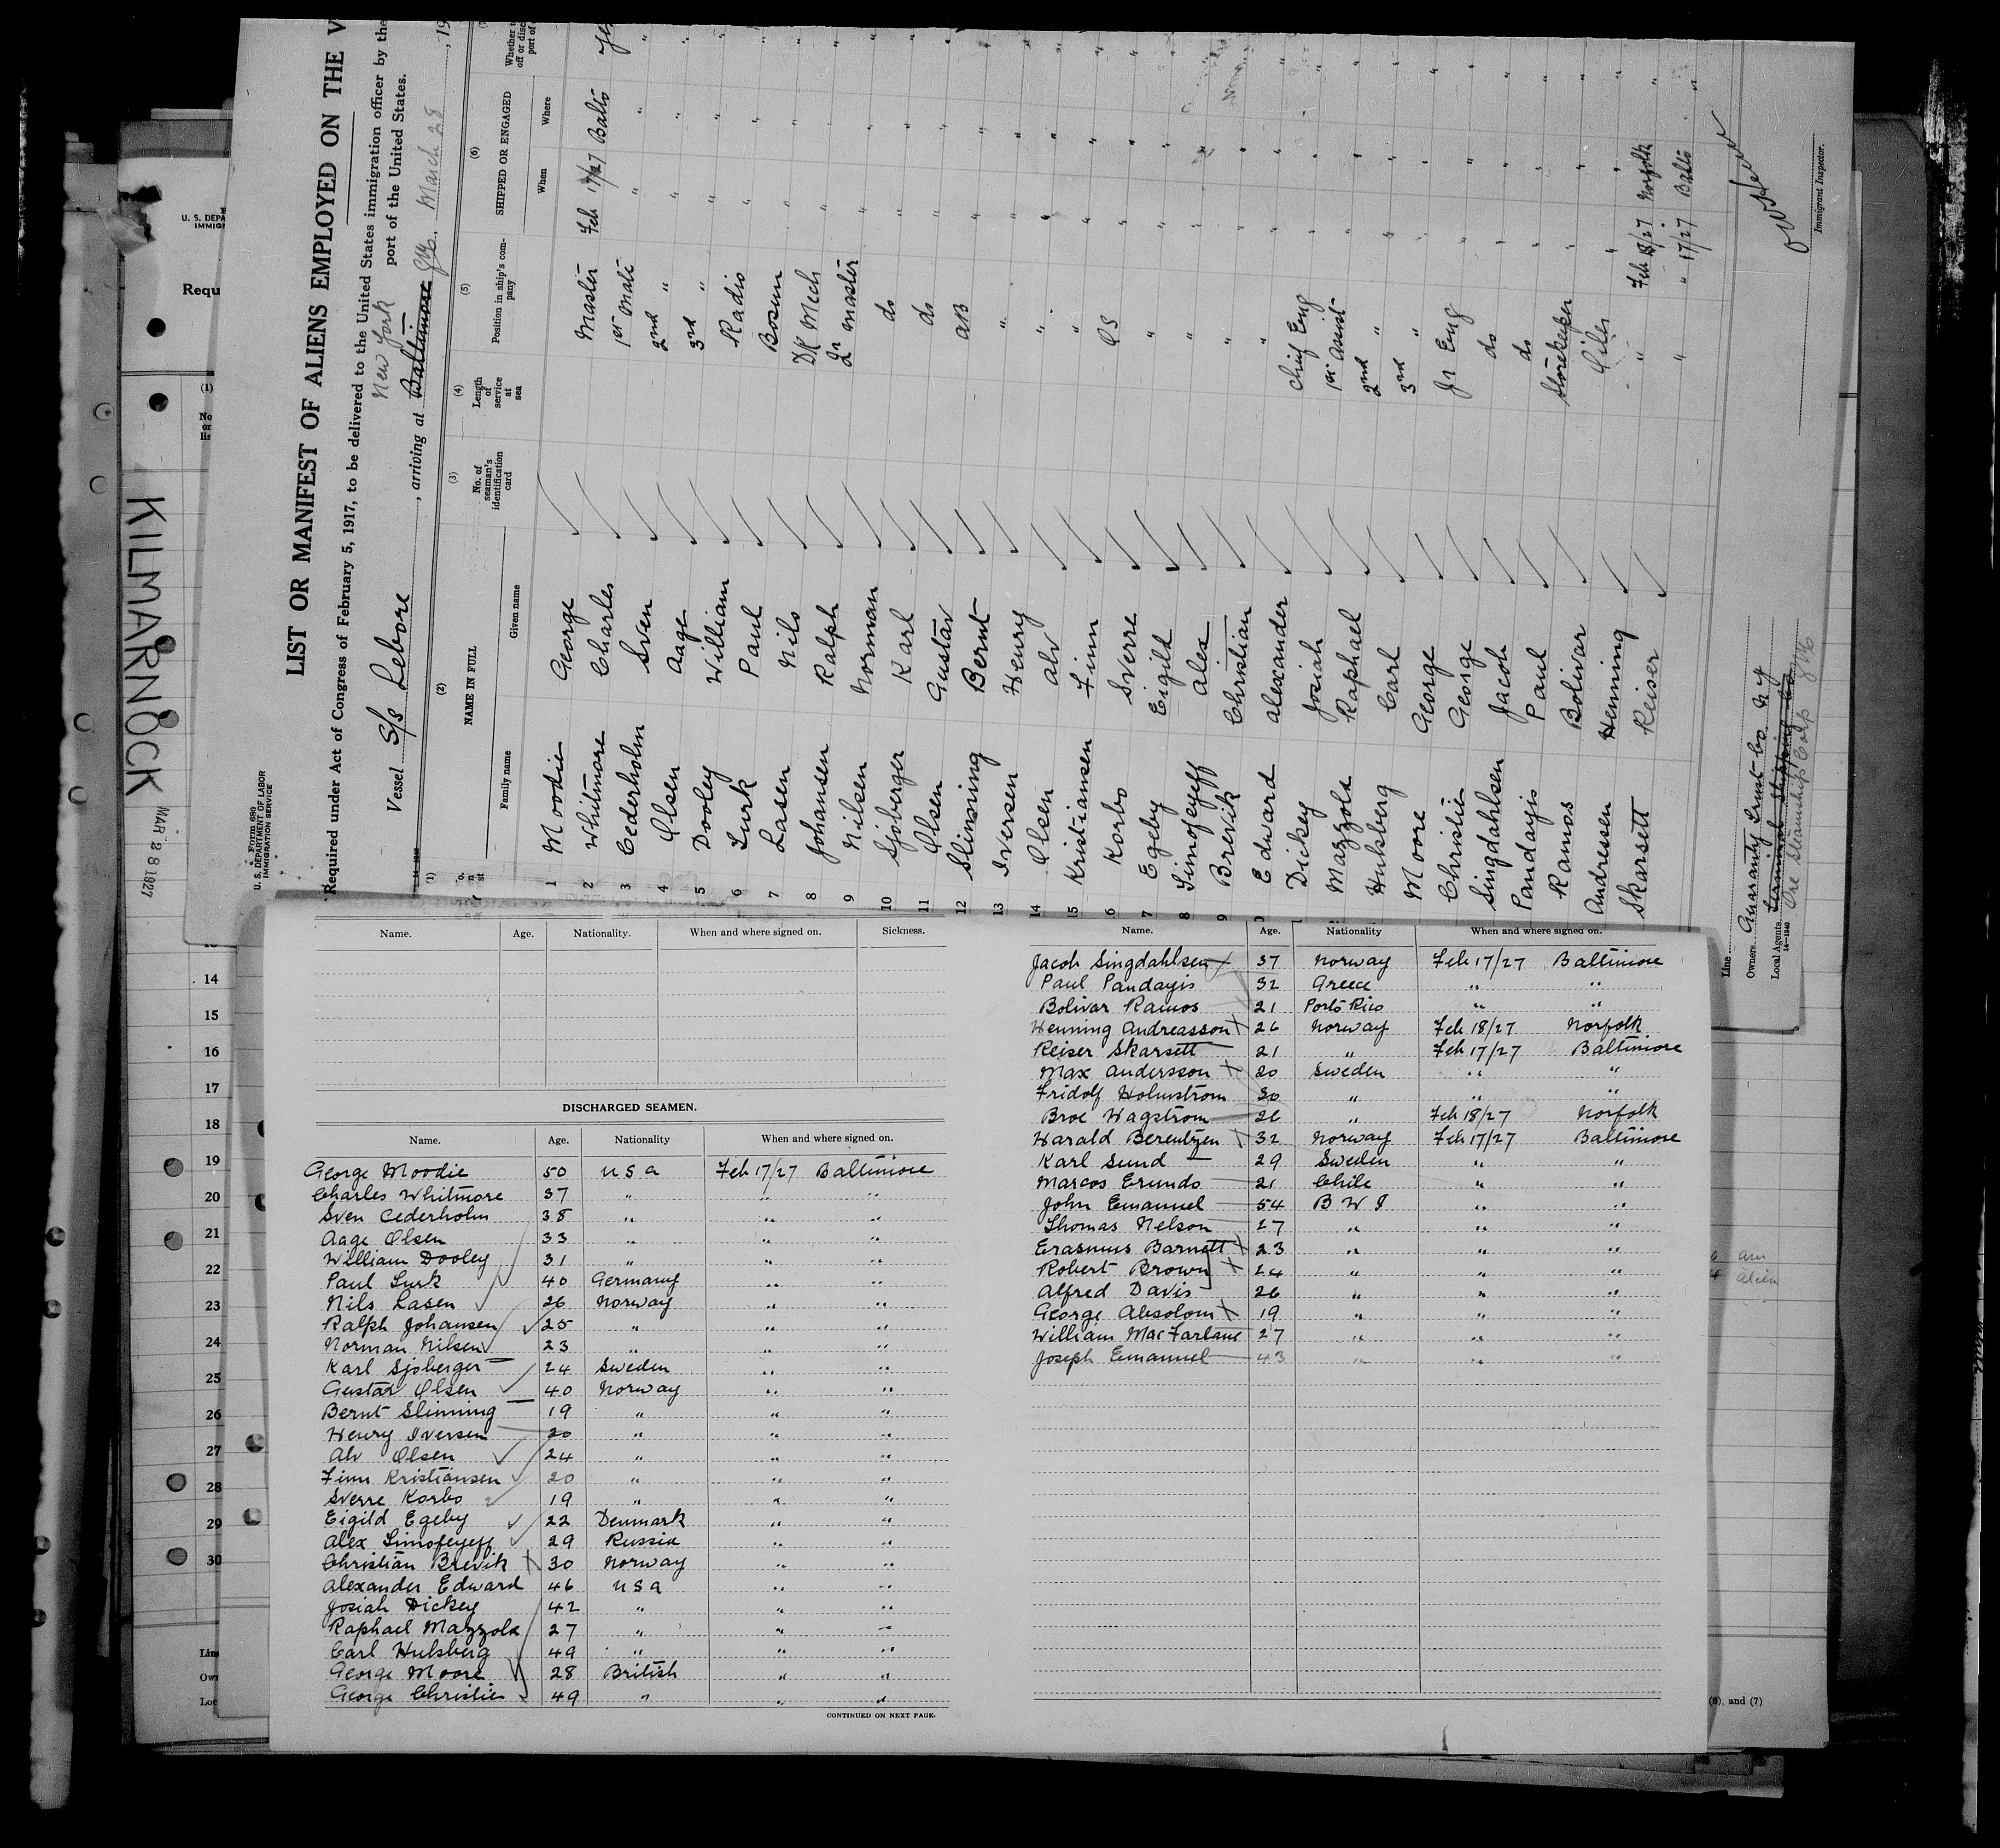 KILMARNOCK
MAR 28 1927
Form 686
U. S. DEPARTMENT OF LABOR
IMMIGRATION SERVICE
LIST OR MANIFEST OF ALIENS EMPLOYED ON THE V
Required under Act of Congress of February 5, 1917, to be delivered to the United States immigration officer by the
port of the United States.
New York
Vessel S/s Lebore, arriving at Baltimore March 28, 19
(1) (2) (3) (4) (5) (6)
NAME IN FULL
Family name Given name
No. of seaman's identification card
Length of service at sea
Position in ship's company
SHIPPED OR ENGAGED
When Where
1 Moodie George Master Feb 17/27 Balto yes
2 Whitmore Charles 1st Mate " "
3 Cederholm Sven 2nd " " "
4 Olsen Aage 3rd " " "
5 Dooley William Radio " "
6 Turk Paul Bosun " "
7 Lasen Nils DK Mech " "
8 Johansen Ralph Qr Master " "
9 Nilsen Norman do " "
10 Sjoberger Karl do " "
11 Olsen Gustav AB " "
12 Slinning Bernt " " "
13 Iversen Henry " " "
14 Olsen Alv " " "
15 Kristiansen Finn OS " "
6 Korbo Sverre " " "
7 Egeby Eigild " " "
8 Timofeyeff Alex " " "
9 Brevik Christian " " "
0 Edward Alexander Chief Eng " "
Dickey Josiah 1st Assist " "
Mazzola Raphael 2nd " " "
Hulsberg Carl 3rd " " "
Moore George Jr Eng " "
Christie George do " "
Singdahlsen Jacob do " "
Pandayis Paul Storekeeper " "
Ramos Bolivar Oiler " "
Andressen Henning " Feb 18/27 Norfolk
Skarsett Reiser " " 17/27 Balto
Immigrant Inspector.
Line
Owners Guaranty Trust Co. N Y
Local Agents Terminal Shipping Co
Ore Steamship Corp
14—1240
U. S. DEPA
IMMIG
Requ
(1)
No
14
15
16
17
18
19
20
21
22
23
24
25
26
27
28
29
30
Line
Own
Loc
Name. Age. Nationality. When and where signed on. Sickness.
DISCHARGED SEAMEN.
Name. Age. Nationality When and where signed on.
George Moodie 50 USA Feb 17/27 Baltimore
Charles Whitmore 37 " " "
Sven Cederholm 38 " " "
Aage Olsen 33 " " "
William Dooley 31 " " "
Paul Turk 40 Germany " "
Nils Lasen 26 Norway " "
Ralph Johansen 25 " " "
Norman Nilsen 23 " " "
Karl Sjoberger 24 Sweden " "
Gustav Olsen 40 Norway " "
Bernt Slinning 19 " " "
Henry Iversen 20 " " "
Alv Olsen 24 " " "
Finn Kristiansen 20 " " "
Sverre Korbo 19 " " "
Eigild Egeby 22 Denmark " "
Alex Timofeyeff 29 Russia " "
Christian Brevik 30 Norway " "
Alexander Edward 46 USA " "
Josiah Dickey 42 " " "
Raphael Mazzola 27 " " "
Carl Hulsberg 49 " " "
George Moore 28 British " "
George Christie 49 " " "
CONTINUED ON NEXT PAGE.
Name. Age. Nationality When and where signed on.
Jacob Singdahlsen 37 Norway Feb 17/27 Baltimore
Paul Pandayis 32 Greece " "
Bolivar Ramos 21 Porto Rico " "
Henning Andreasson 26 Norway Feb 18/27 Norfolk
Reiser Skarsett 21 " Feb 17/27 Baltimore
Max Andersson 20 Sweden " "
Fridolf Holmstrom 30 " " "
Broe Wagstrom 26 " Feb 18/27 Norfolk
Harald Berentzen 32 Norway Feb 17/27 Baltimore
Karl Sund 29 Sweden " "
Marcos Erundo 21 Chile " "
John Emanuel 54 B W I " "
Thomas Nelson 27 " " "
Erasmus Barnett 23 " " "
Robert Brown 24 " " "
Alfred Davis 26 " " "
George Absolom 19 " " "
William MacFarlane 27 " " "
Joseph Emanuel 43 " " "
am
alien
(6), and (7)